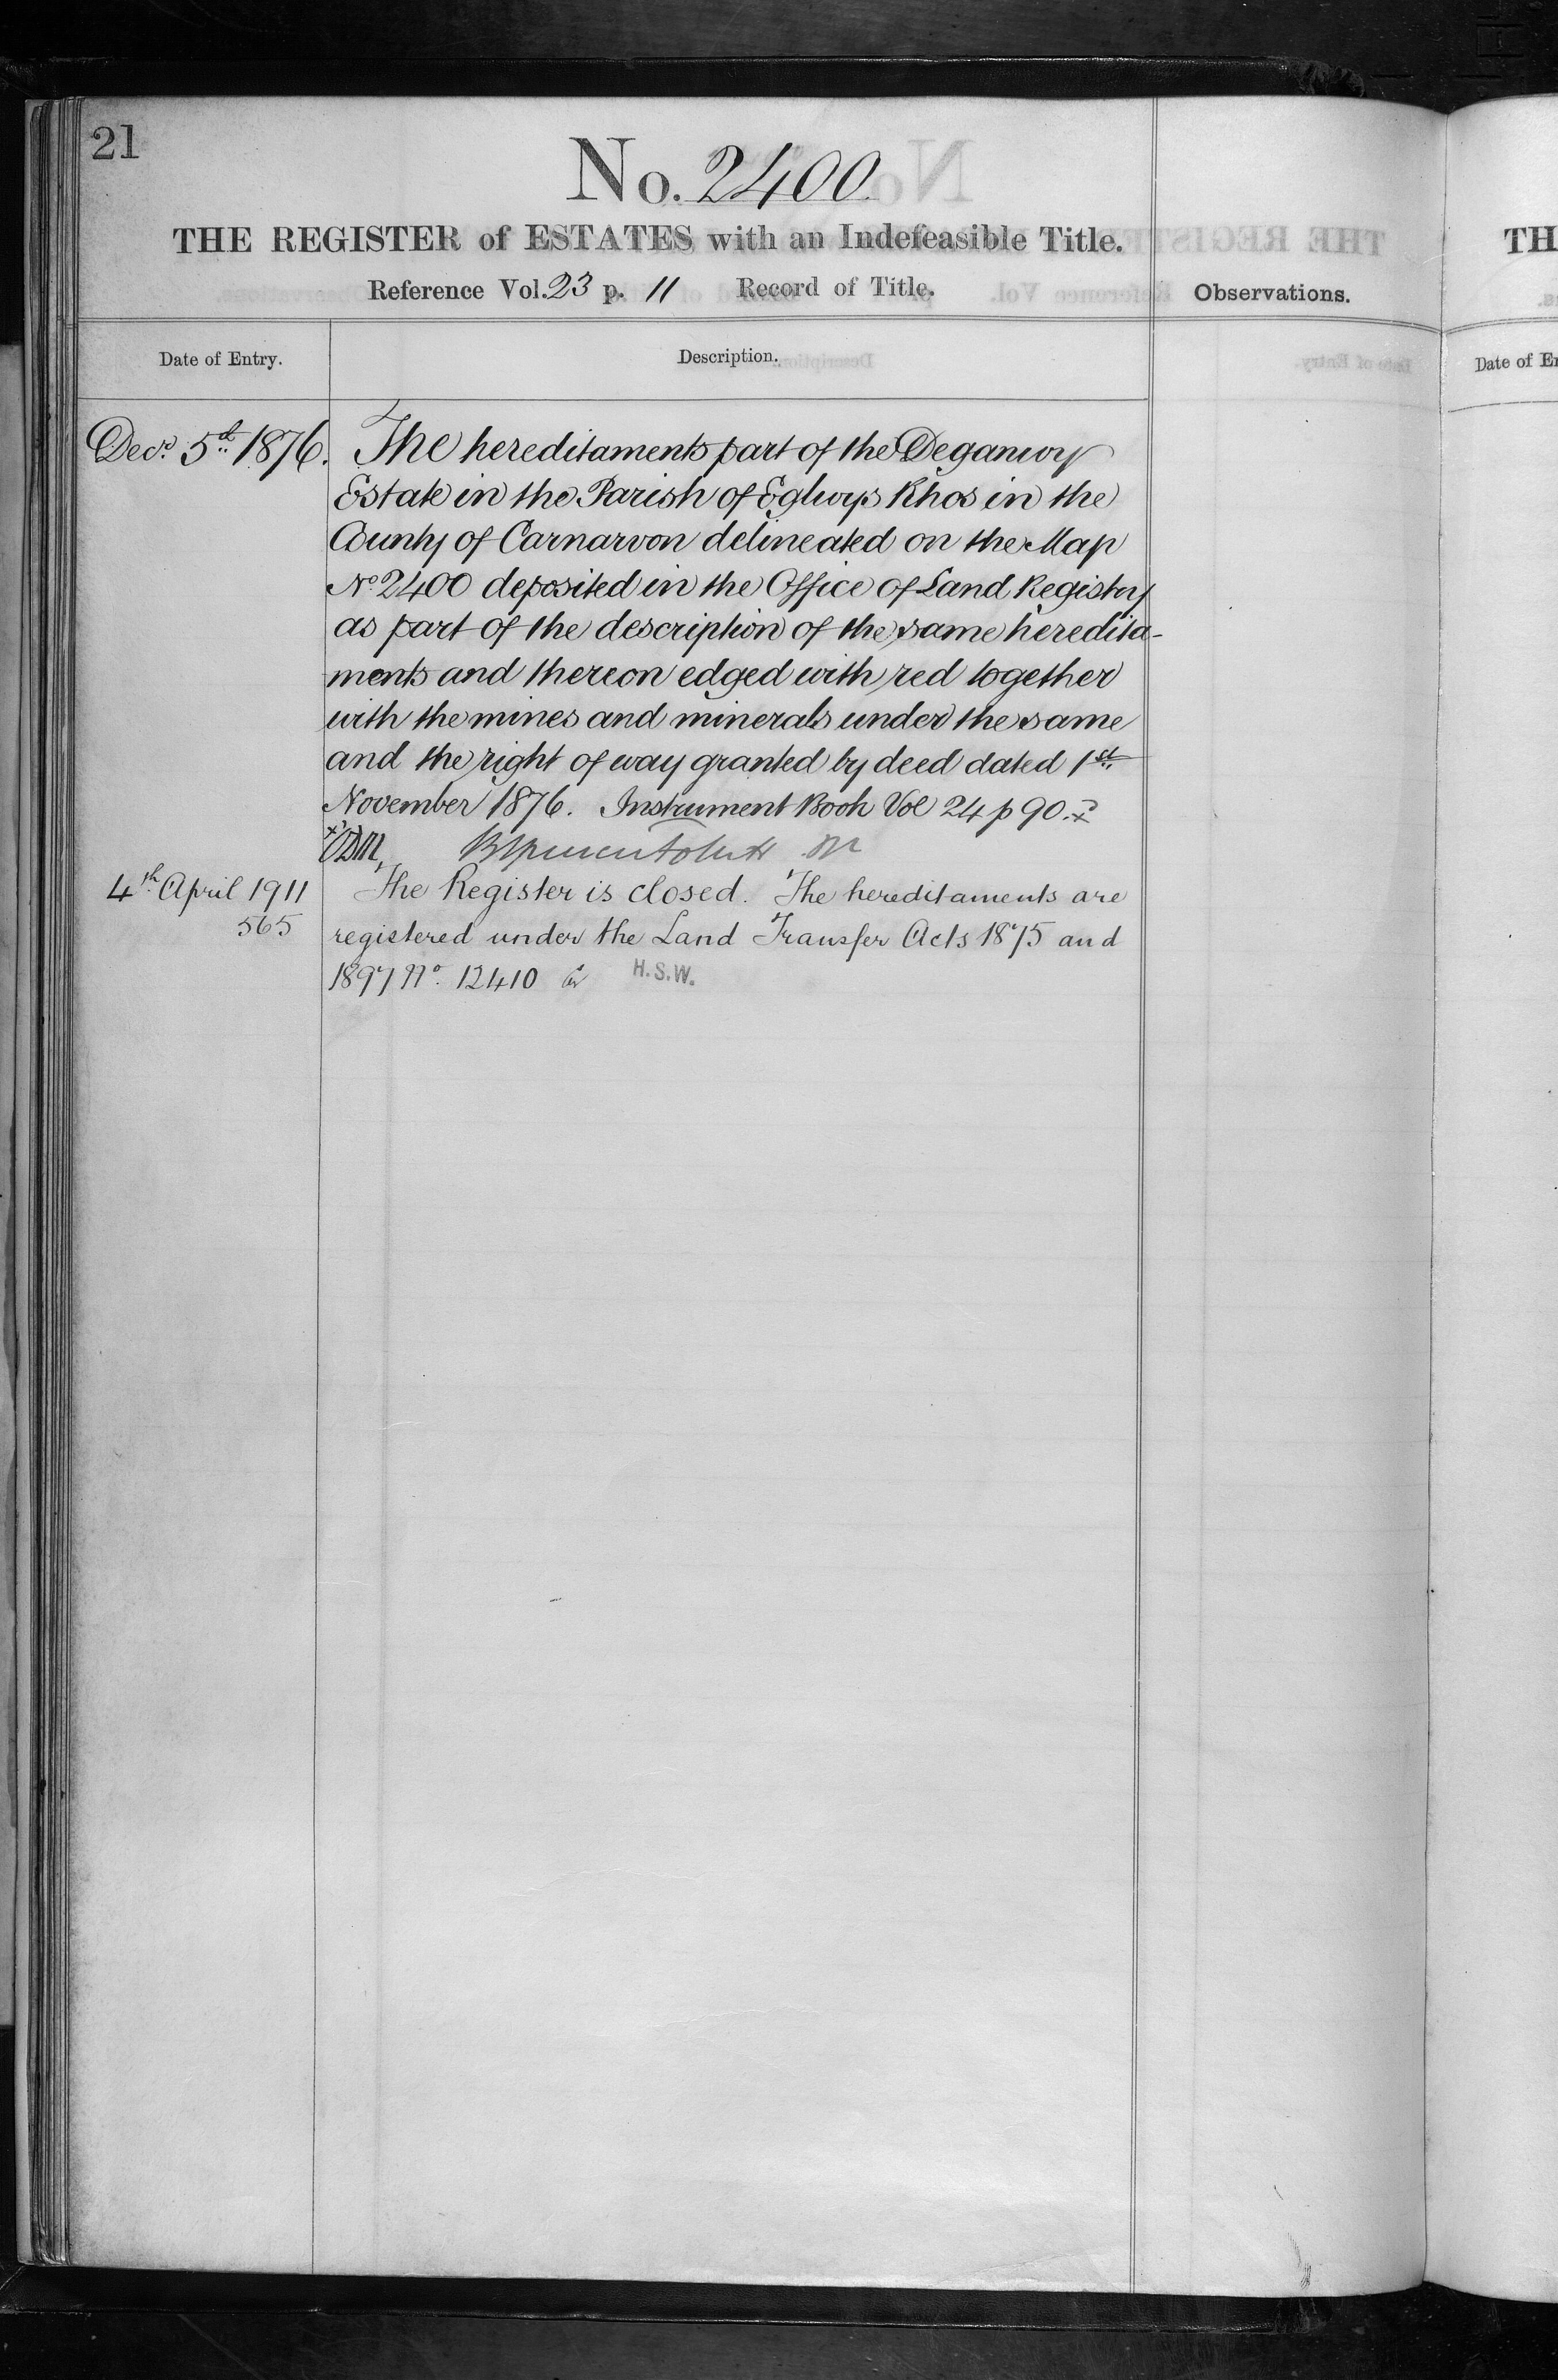 21
No. 2400
THE REGISTER of ESTATES with an Indefeasible Title.
Reference Vol. 23 p. 11 Record of Title.
Observations.
TH
Date of Entry.
Description.
Date of En
Decr. 5th 1876.
The hereditaments part of the Deganwy
Estate in the Parish of Eglwys Rhos in the
County of Carnarvon delineated on the Map
No. 2400 deposited in the Office of Land Registry
as part of the description of the same heredita-
ments and thereon edged with red together
with the mines and minerals under the same
and the right of way granted by deed dated 1st
November 1876. Instrument Book Vol 24 p 90.
4th April 1911
565
The Register is closed. The hereditaments are
registered under the Land Transfer Acts 1875 and
1897 No. 12410 H.S.W.